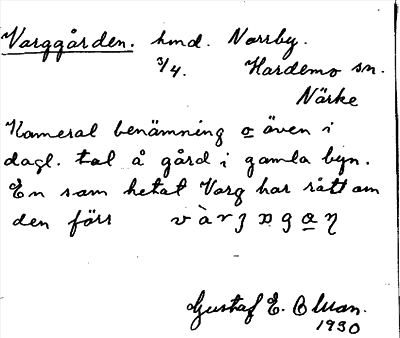 Varggården. hmd. Norrby.
3/4. Hardemo sn.
Närke
Kameral benämning o även i
dagl. tal å gård i gamla byn.
En som hetat Varg har rått om
den förs
Gustaf E.
1930